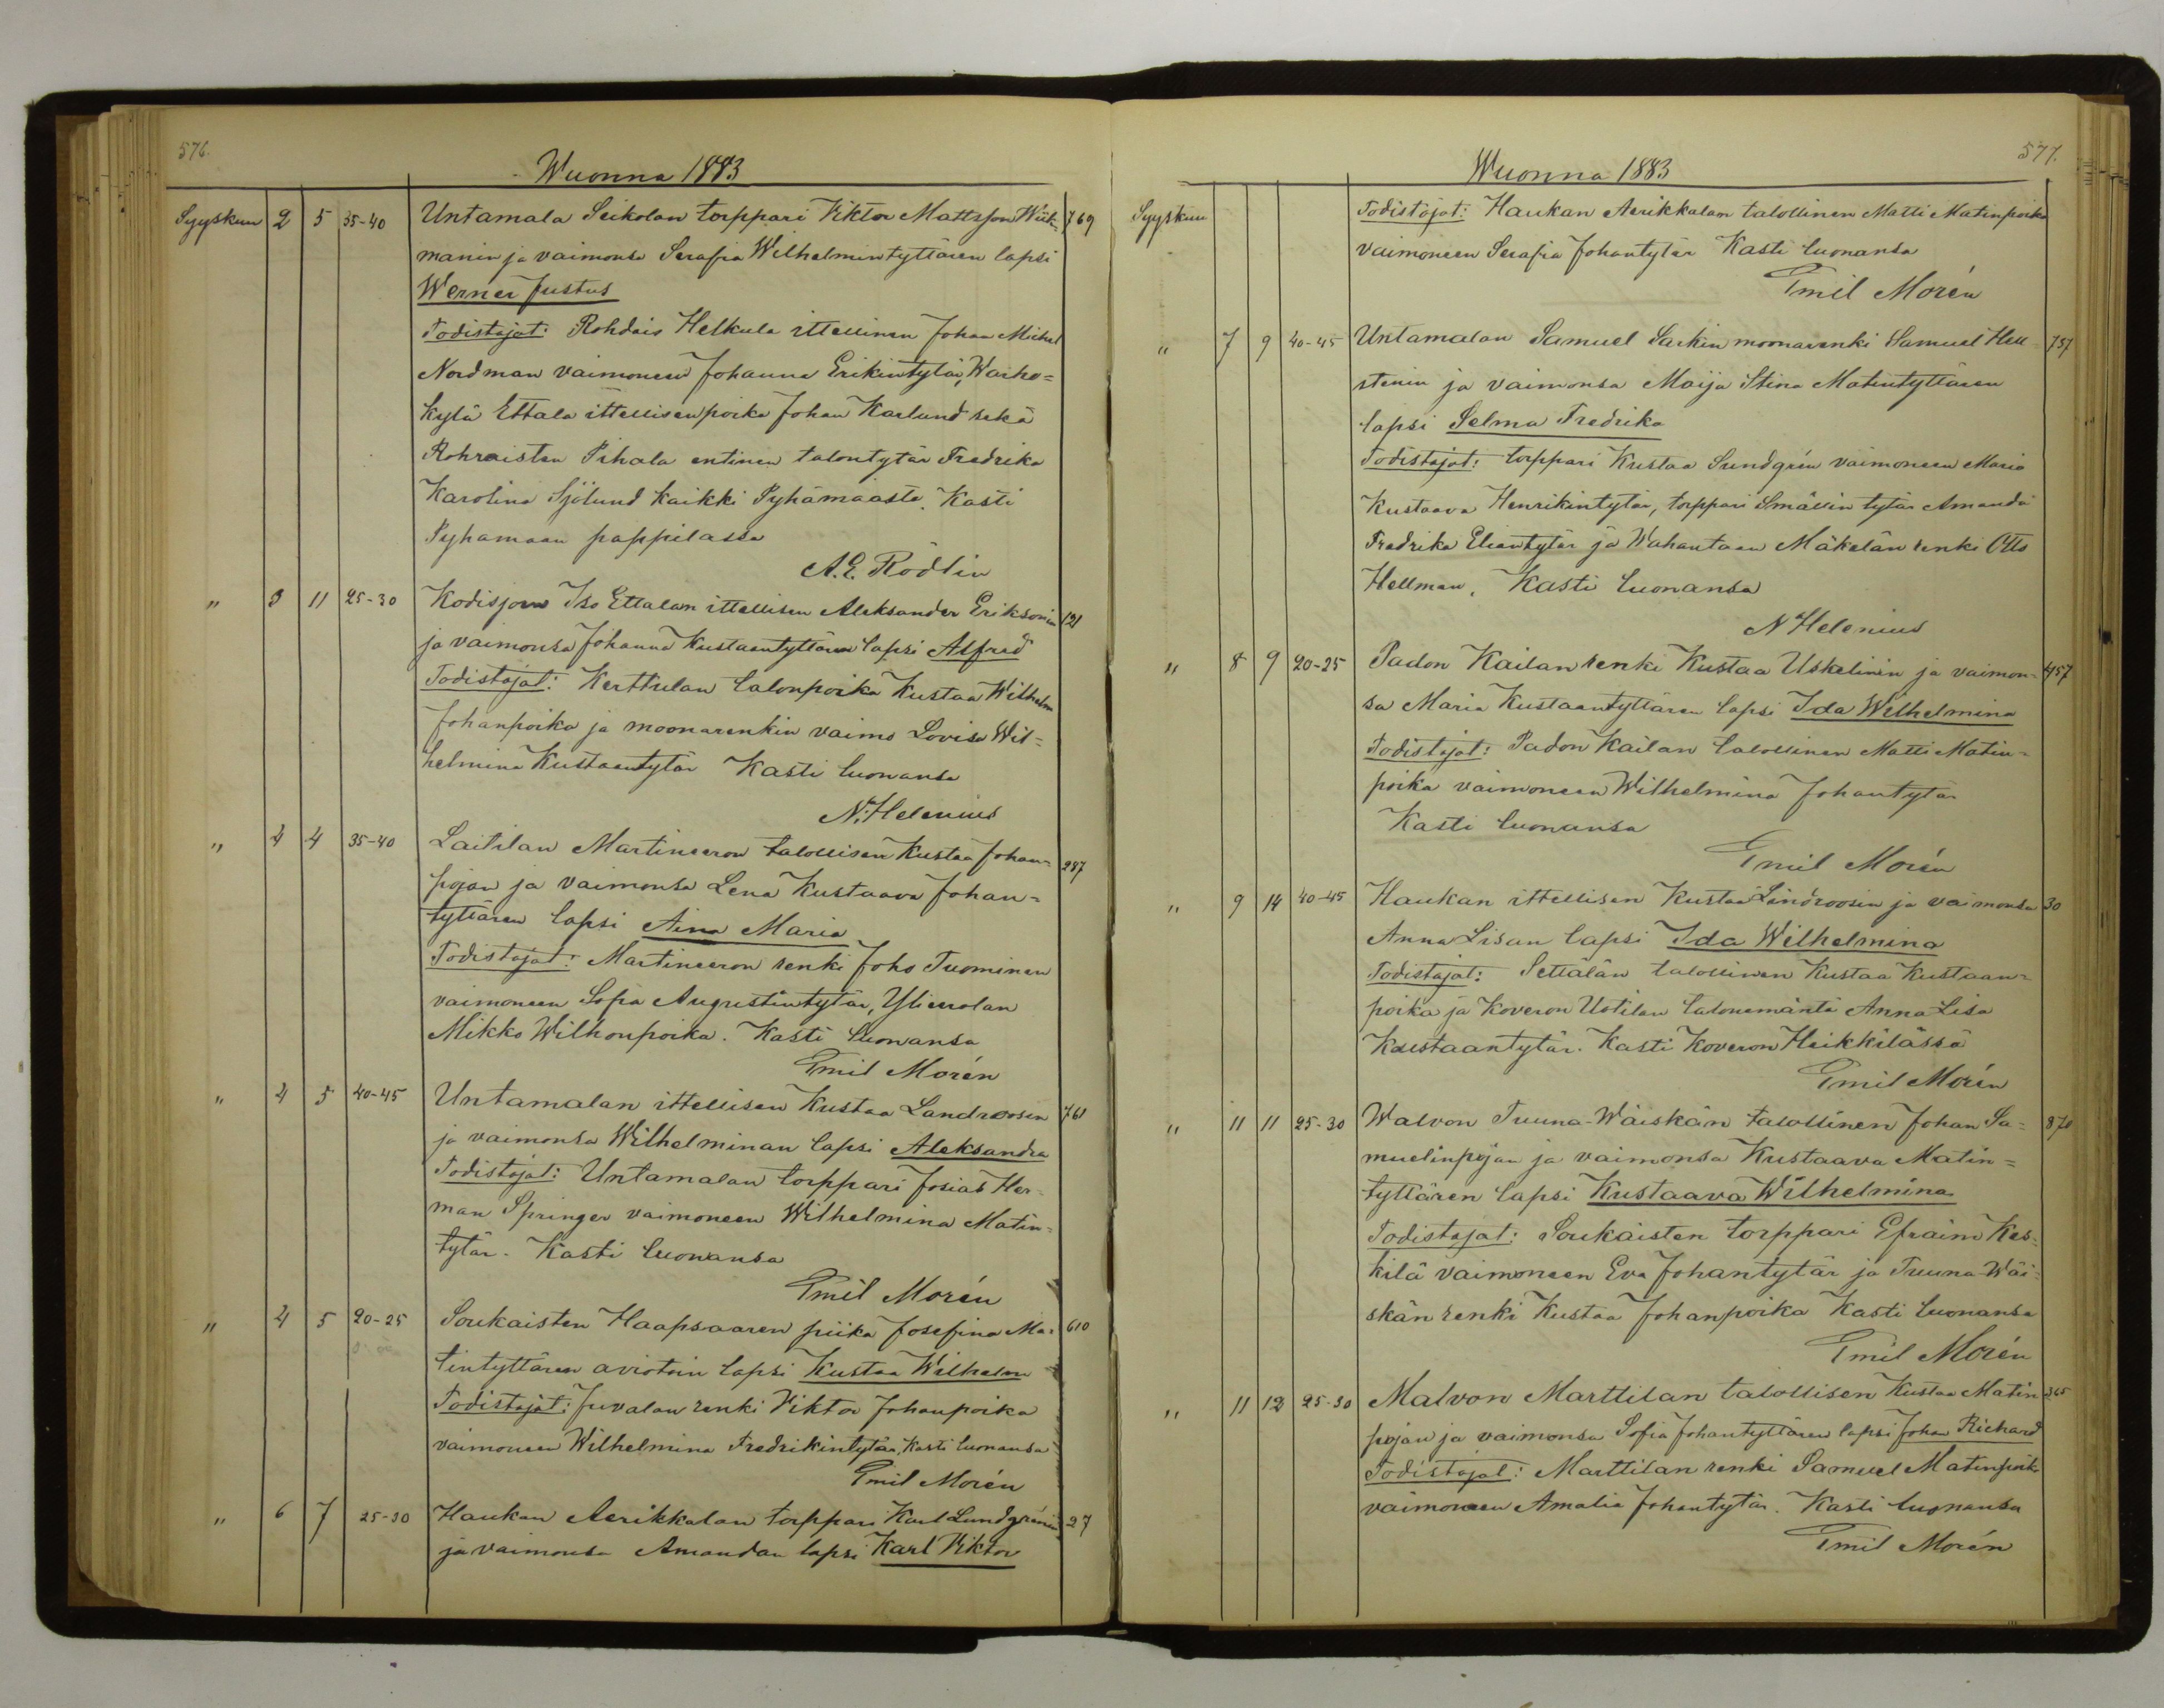 576.
Wuonna 1883
Syyskuu 2 5 35-40 Untamala Seikolan torppari Viktor Mattsson Wiik- 769
manin ja vaimonsa Serafia Wilhelmintyttären lapsi
Werner Justus
Todistajat: Rohdais Helkula ittellinen Johan Michel
Nordman vaimoneen Johanna Erikintytär, Warho=
kylä Ettala ittellisenpoika Johan Karlund sekä
Rohraisten Pihala entinen talontytär Fredrika
Karolina Sjölund kaikki Pyhämaasta. Kasti
Pyhamaan pappilassa
A. E. Rödlin
" 3 11 25-30 Kodisjoen Iso Ettalan ittellisen Aleksander Eriksonin 121
ja vaimonsa Johanna Kustaantyttären lapsi Alfred
Todistajat: Kerttulan talonpoika Kustaa Wilhelm
Johanpoika ja moonarenkin vaimo Lovisa Wil=
helmina Kustaantytär Kasti luonansa
N. Helenius
" 4 4 35-40 Laitilan Martineeron talollisen Kustaa Johan= 287
pojan ja vaimonsa Lena Kustaava Johan=
tyttären lapsi Aina Maria
Todistajat: Martineeron renki Joho Tuominen
vaimoneen Sofia Augustintytär, Ylieerolan
Mikko Wilhonpoika. Kasti luonansa
Emil Morén
" 4 5 40-45 Untamalan ittellisen Kustaa Landroosin 761
ja vaimonsa Wilhelminan lapsi Aleksandra
Todistajat: Untamalan torppari Josias Her-
man Springer vaimoneen Wilhelmina Matin-
tytär. Kasti luonansa
Emil Morén
" 4 5 20-25 Soukaisten Haapsaaren piika Josefina Ma= 610
tintyttären aviotoin lapsi Kustaa Wilhelm
Todistajat: Juvalan renki Viktor Johanpoika
vaimoneen Wilhelmina Fredrikintytär, Kasti luonansa
Emil Morén
" 6 7 25-30 Haukan Aerikkalan torppari Karl Lundgrénin 27
ja vaimonsa Amandan lapsi Karl Viktor
577.
Wuonna 1883
Syyskuu Todistajat: Haukan Aerikkalan talollinen Matti Matinpoika
vaimoneen Serafia Johantytär Kasti luonansa
Emil Morén
" 7 9 40-45 Untamalan Samuel Sarkin moonarenki Samuel Hell- 757
stenin ja vaimonsa Maija Stina Matintyttären
lapsi Selma Fredrika
Todistajat: torppari Kustaa Sundgrén vaimoneen Maria
Kustaava Henrikintytär, torppari Smällin tytär Amanda
Fredrika Eliantytär ja Wahantaan Mäkelän renki Otto
Hellman, Kasti luonansa
N Helenius
" 8 9 20-25 Padon Kailan renki Kustaa Uskelinin ja vaimon= 457
sa Maria Kustaantyttären lapsi Ida Wilhelmina
Todistajat: Padon Kailan talollinen Matti Matin=
poika vaimoneen Wilhelmina Johantytär
Kasti luonansa
Emil Morén
" 9 14 40-45 Haukan ittellisen Kustaa Lindroosin ja vaimonsa 30
Anna Lisan lapsi Ida Wilhelmina
Todistajat: Settälän talollinen Kustaa Kustaan=
poika ja Koveron Uotilan talonemäntä Anna Lisa
Kustaantytär. Kasti Koveron Heikkilässä
Emil Morén
" 11 11 25-30 Walvon Tuuna-Wäiskän talollinen Johan Sa= 870
muelinpojan ja vaimonsa Kustaava Matin=
tyttären lapsi Kustaava Wilhelmina
Todistajat: Soukaisten torppari Efraim Kes=
kilä vaimoneen Eva Johantytär ja Tuuna-Wäi=
skän renki Kustaa Johanpoika Kasti luonansa
Emil Morén
" 11 12 25-30 Malvon Marttilan talollisen Kustaa Matin 365
pojan ja vaimonsa Sofia Johantyttären lapsi Johan Richard
Todistajat: Marttilan renki Samuel Matinpoika
vaimoneen Amalia Johantytär. Kasti luonansa
Emil Morén